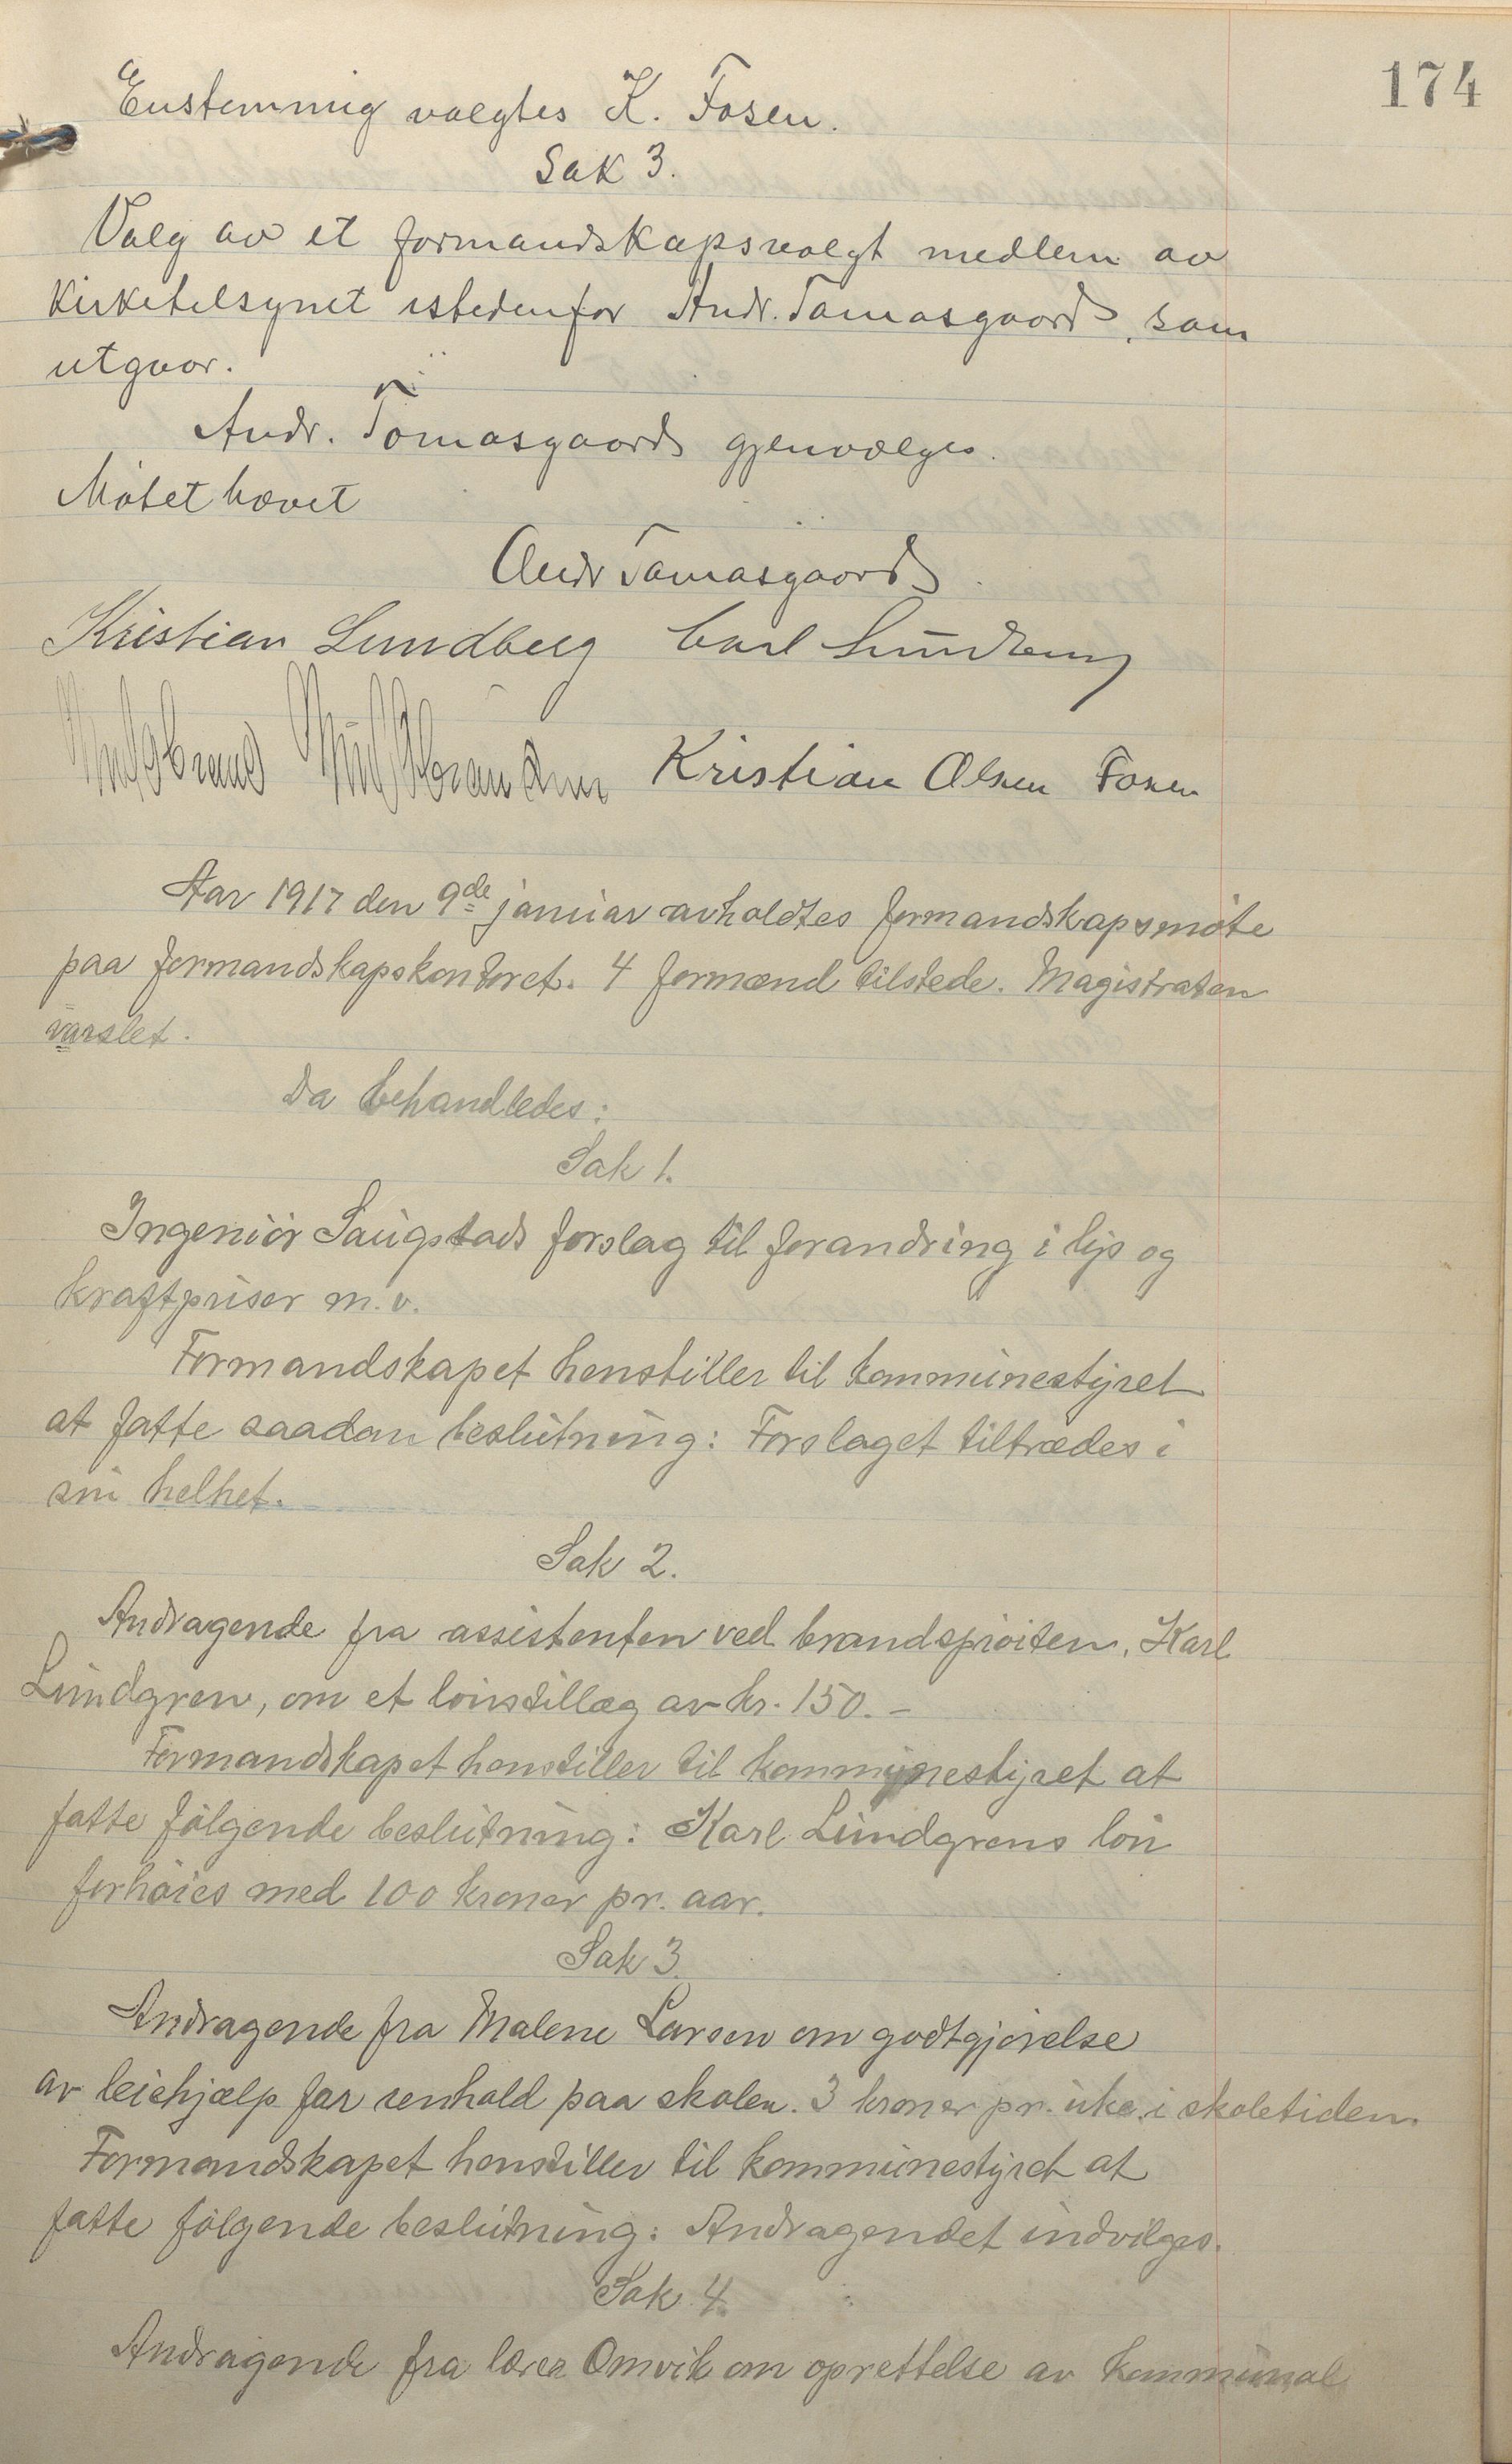 174
Enstemmig valgtes K. Fosen.
Sak 3.
Valg av et formandskapsvalgt medlem av
kirketilsynet istedenfor Andr. Tomasgaard, som
utgaar.
Andr. Tomasgaard gjenvælges.
Møtet hævet
Andr Tomasgaard
Kristian Lundberg Carl Lundberg
Kristian Olsen Fosen
Aar 1917 den 9de januar avholdtes formandskapsmøte
paa formandskapskontoret. 4 formænd tilstede. Magistraten
varslet.
Da behandledes:
Sak 1.
Ingeniør Saugstads forslag til forandring i lys og
kraftpriser m.v.
Formandskapet henstiller til kommunestyret
at fatte saadan beslutning: Forslaget tiltrædes i
sin helhet.
Sak 2.
Andragende fra assistenten ved brandsprøiten, Karl
Lundgren, om et lønstillæg av kr. 150.-
Formandskapet henstiller til kommunestyret at
fatte følgende beslutning: Karl Lundgrens løn
forhøies med 100 kroner pr. aar.
Sak 3.
Andragende fra Malene Larsen om godtgjørelse
av leiehjælp for renhold paa skolen. 3 kroner pr. uke i skoletiden.
Formandskapet henstiller til kommunestyret at
fatte følgende beslutning: Andragendet indvilges.
Sak 4.
Andragende fra lærer Omvik om oprettelse av kommunal